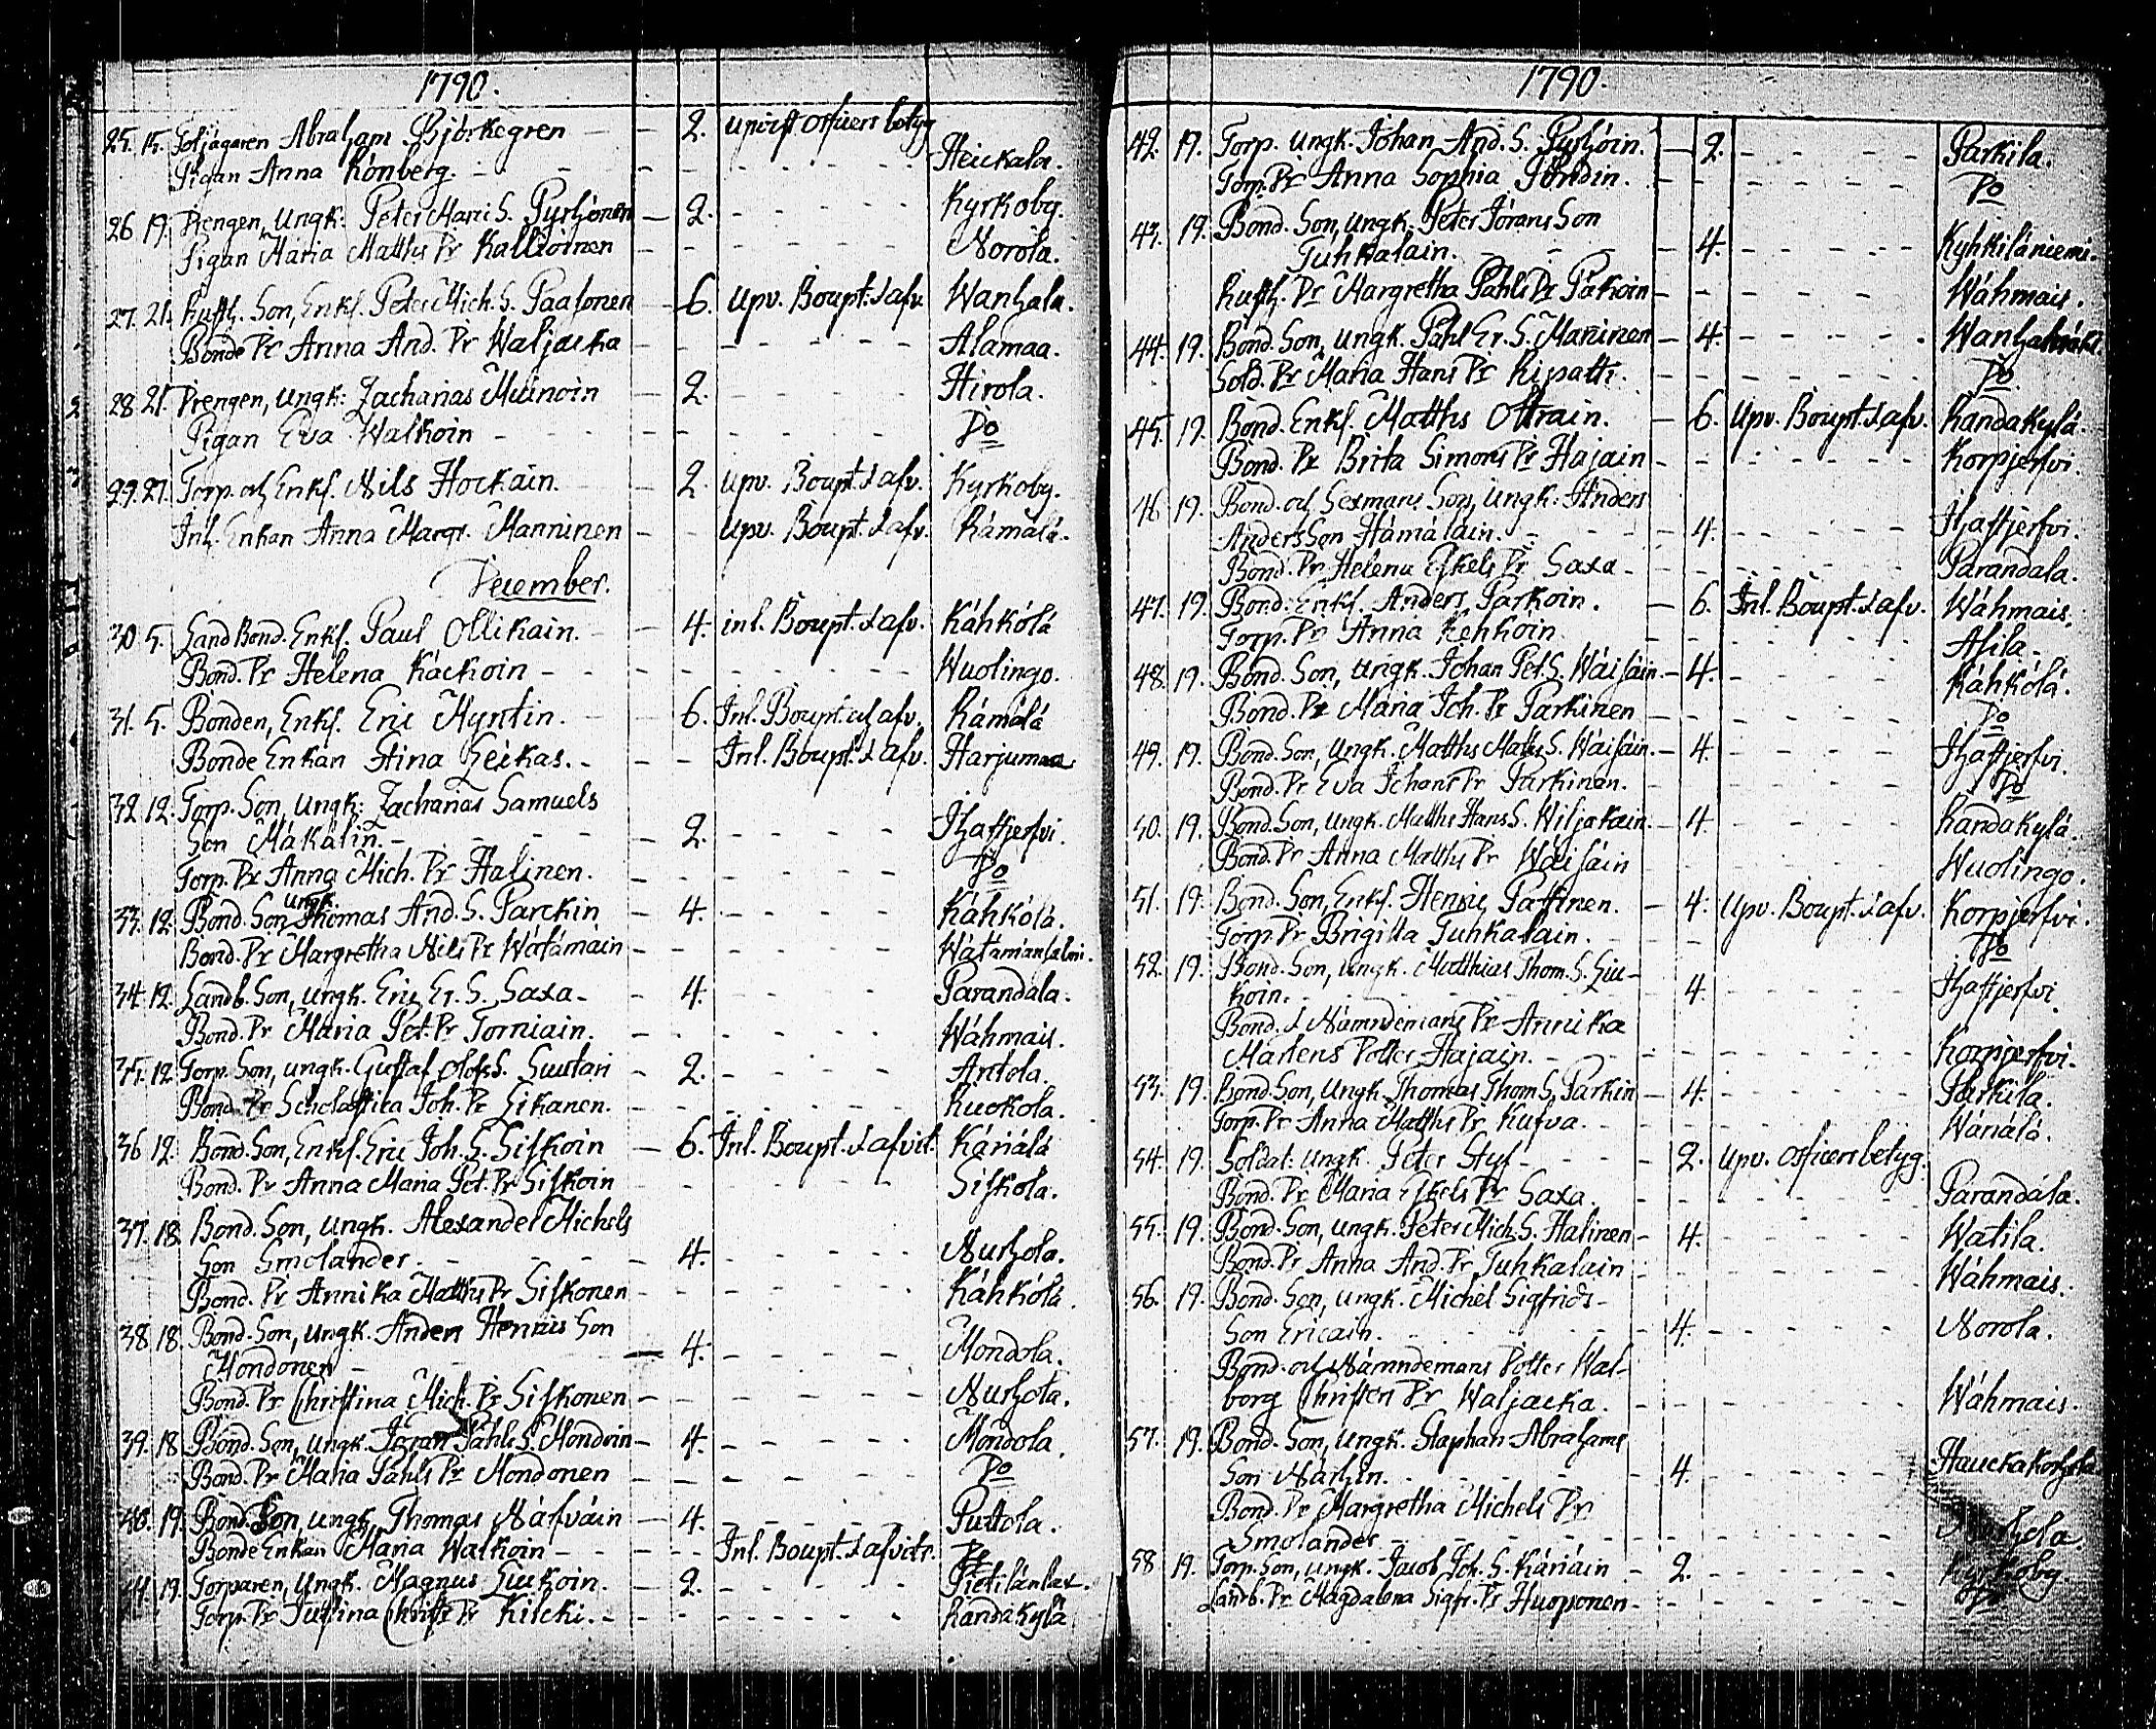 1790.
25. 15. Fotjägaren Abraham Björkegren - - 2. upvist officers betyg
Pigan Anna Rönberg. - Heickala.
26 19. Drengen, Ungk. Peter Marci S. Pyrhönen - 2. Kyrkoby.
Pigan Maria Matths Dr Kallioinen - Norola.
27. 21. Rusth. Son, Enkl. Peter Mich. S. Paasonen - 6. upv. Boupt. & afv. Wanhala.
Bonde Dr Anna And. Dr Waljacka - Alamaa.
28 21. Drengen, Ungk: Zacharias Muinoin - 2. Hirola.
Pigan Eva Walkoin - Do
29. 27. Torp. och Enkl. Nils Hockain. - 2. upv. Boupt. & afv. Kyrkoby.
Inh. Enkan Anna Margr. Manninen - upv. Boupt. & afv. Rämälä.
December.
30. 5. Land Bond. Enkl. Paul Ollikain. - 4. inl. Boupt. & afv. Kähkölä
Bond. Dr Helena Käckoin - Wuolingo.
31. 5. Bonden, Enkl. Eric Hyntin. - 6. Inl. Boupt. och afv. Rämälä
Bonde Enkan Stina Leikas. - Inl. Boupt. & afv. Harjumaa
32 12. Torp. Son, Ungk: Zacharias Samuels
Son Mäkäliñ. - 2. Ihastjerfvi.
Torp. Dr Anna Mich. Dr Halinen. Do
33. 12. Bond. Son Ungk. Thomas And. S. Parckin - 4. Kähkölä.
Bond. Dr Margretha Nils Dr Wätämain - Watamansalmi.
34. 12. Landb. Son, Ungk. Eric Er. S. Saxa - 4. Parandala.
Bond. Dr Maria Pet. Dr Torniain. - Wähmais.
35. 12. Torp. Son, Ungk. Gustaf Olofs S. Suutari - 2. Antola.
Bond. Dr Scholastica Joh. Dr Likanen. - Ruokola.
36 12. Bond. Son, Enkl. Eric Joh. S. Siskoin - 6. Inl. Boupt. & afvit. Käriälä
Bond. Dr Anna Maria Pet. Dr Siskoin Siskola.
37. 18. Bond. Son, Ungk. Alexander Michels
Son Smolander. - 4. Nurhola.
Bond. Dr Annika Matths Dr Siskonen - Kähkölä.
38. 18. Bond. Son, Ungk. Anders Henrics Son
Mondonen - 4. Mondola.
Bond. Dr Christina Mich. Dr Siskonen - Nurhola.
39. 18. Bond. Son, Ungk. Jöran Påhls S. Mondoin - 4. Mondola.
Bond. Dr Maria Påhls Dr Mondonen - Do
40. 19. Bond. Son, Ungk. Thomas Näfväin - 4. Puttola.
Bonde Enkan Maria Walkoin - Inl. Boupt. & afvitr. Do
41. 19. Torparen, Ungk. Magnus Liukoin. - 2. Pietilänlax.
Torp. Dr Justina Christ. Dr Kilcki. - Randakylä
1790.
42. 19. Torp. Ungk. Johan And. S. Pyrhöin. - 2. Parkila.
Torp. Dr Anna Sophia Pöndin. - Do
43. 19. Bond. Son, Ungk. Peter Jörans Son
Tuhkalain. - 4. Kyhkiläniemi.
Rusth. Dr Margretha Påhls Dr Pakoin - Wähmais.
44. 19. Bond. Son, Ungk. Påhl Er. S. Mañinen - 4.
Sold. Dr Maria Hans Dr Kipatti. Do
45. 19. Bond. Enkl. Matths Ollrain. - 6. Upv. Boupt. & afv. Randakylä.
Bond. Dr Brita Simons Dr Hajain - Korpjerfvi.
46 19. Bond. och Sexmans Son, Ungk. Anders
Anders Son Hämäläin. - 4. Ihastjerfvi.
Bond. Dr Helena Eskels Dr Saxa - Parandala.
47. 19. Bond. Enkl. Anders Parkoin. - 6. Inl. Boupt. & afv. Wähmais.
Torp. Dr Anna Kehkoin Asila -
48. 19. Bond. Son, Ungk. Johan Pet. S. Wäisäin. - 4. Kähkölä.
Bond. Dr Maria Joh. Dr Parkinen - Do
49. 19. Bond. Son, Ungk. Matths Matts S. Wäisäin. - 4. Ihastjerfvi.
Bond. Dr Eva Johans Dr Parkinen. Do
50. 19. Bond. Son, Ungk. Matths Hans S. Wiljakain. - 4. Randakylä.
Bond. Dr Anna Matths Dr Wäisäin Wuolingo.
51. 19. Bond. Son, Enkl. Henric Pattinen. - 4. Upv. Boupt. & afv. Korpjerfvi.
Torp. Dr Brigitta Tuhkalain. Do
52. 19. Bond. Son, Ungk. Matthias Thom. S. Liu-
koin. - 4. Ihastjerfvi
Bond. & Nämndemans Dr Annika
Mårtens Dotter Hajain. - Korpjerfvi.
53. 19. Bond. Son, Ungk. Thomas Thom. S. Parkin - 4. Parkila.
Torp. Dr Anna Matths Dr Kufva. Wänälä.
54. 19. Soldat. Ungk. Peter Styf - 2. Upv. officers betyg.
Bond. Dr Maria Eskels Dr Saxa. Parandala.
55. 19. Bond. Son, Ungk. Peter Mich. S. Halinen - 4. Watila.
Bond. Dr Anna And. Dr Tuhkalain Wähmais.
56. 19. Bond. Son, Ungk. Michel Sigfrids-
Son Ericain. - 4. Norola.
Bond. och Nämndemans Dotter Wal-
borg Christers Dr Waljacka. - Wähmais.
57. 19. Bond. Son, Ungk. Staphan Abrahams
Son Närhin. - 4.
Bond. Dr Margretha Michels Dr
Smolander - Nurhola
58 19. Torp. Son, Ungk. Jacob Joh. S. Käriäin - 2. Kyrkoby.
Landb. Dr Magdalena Sigfr. Dr Huoponen - Do